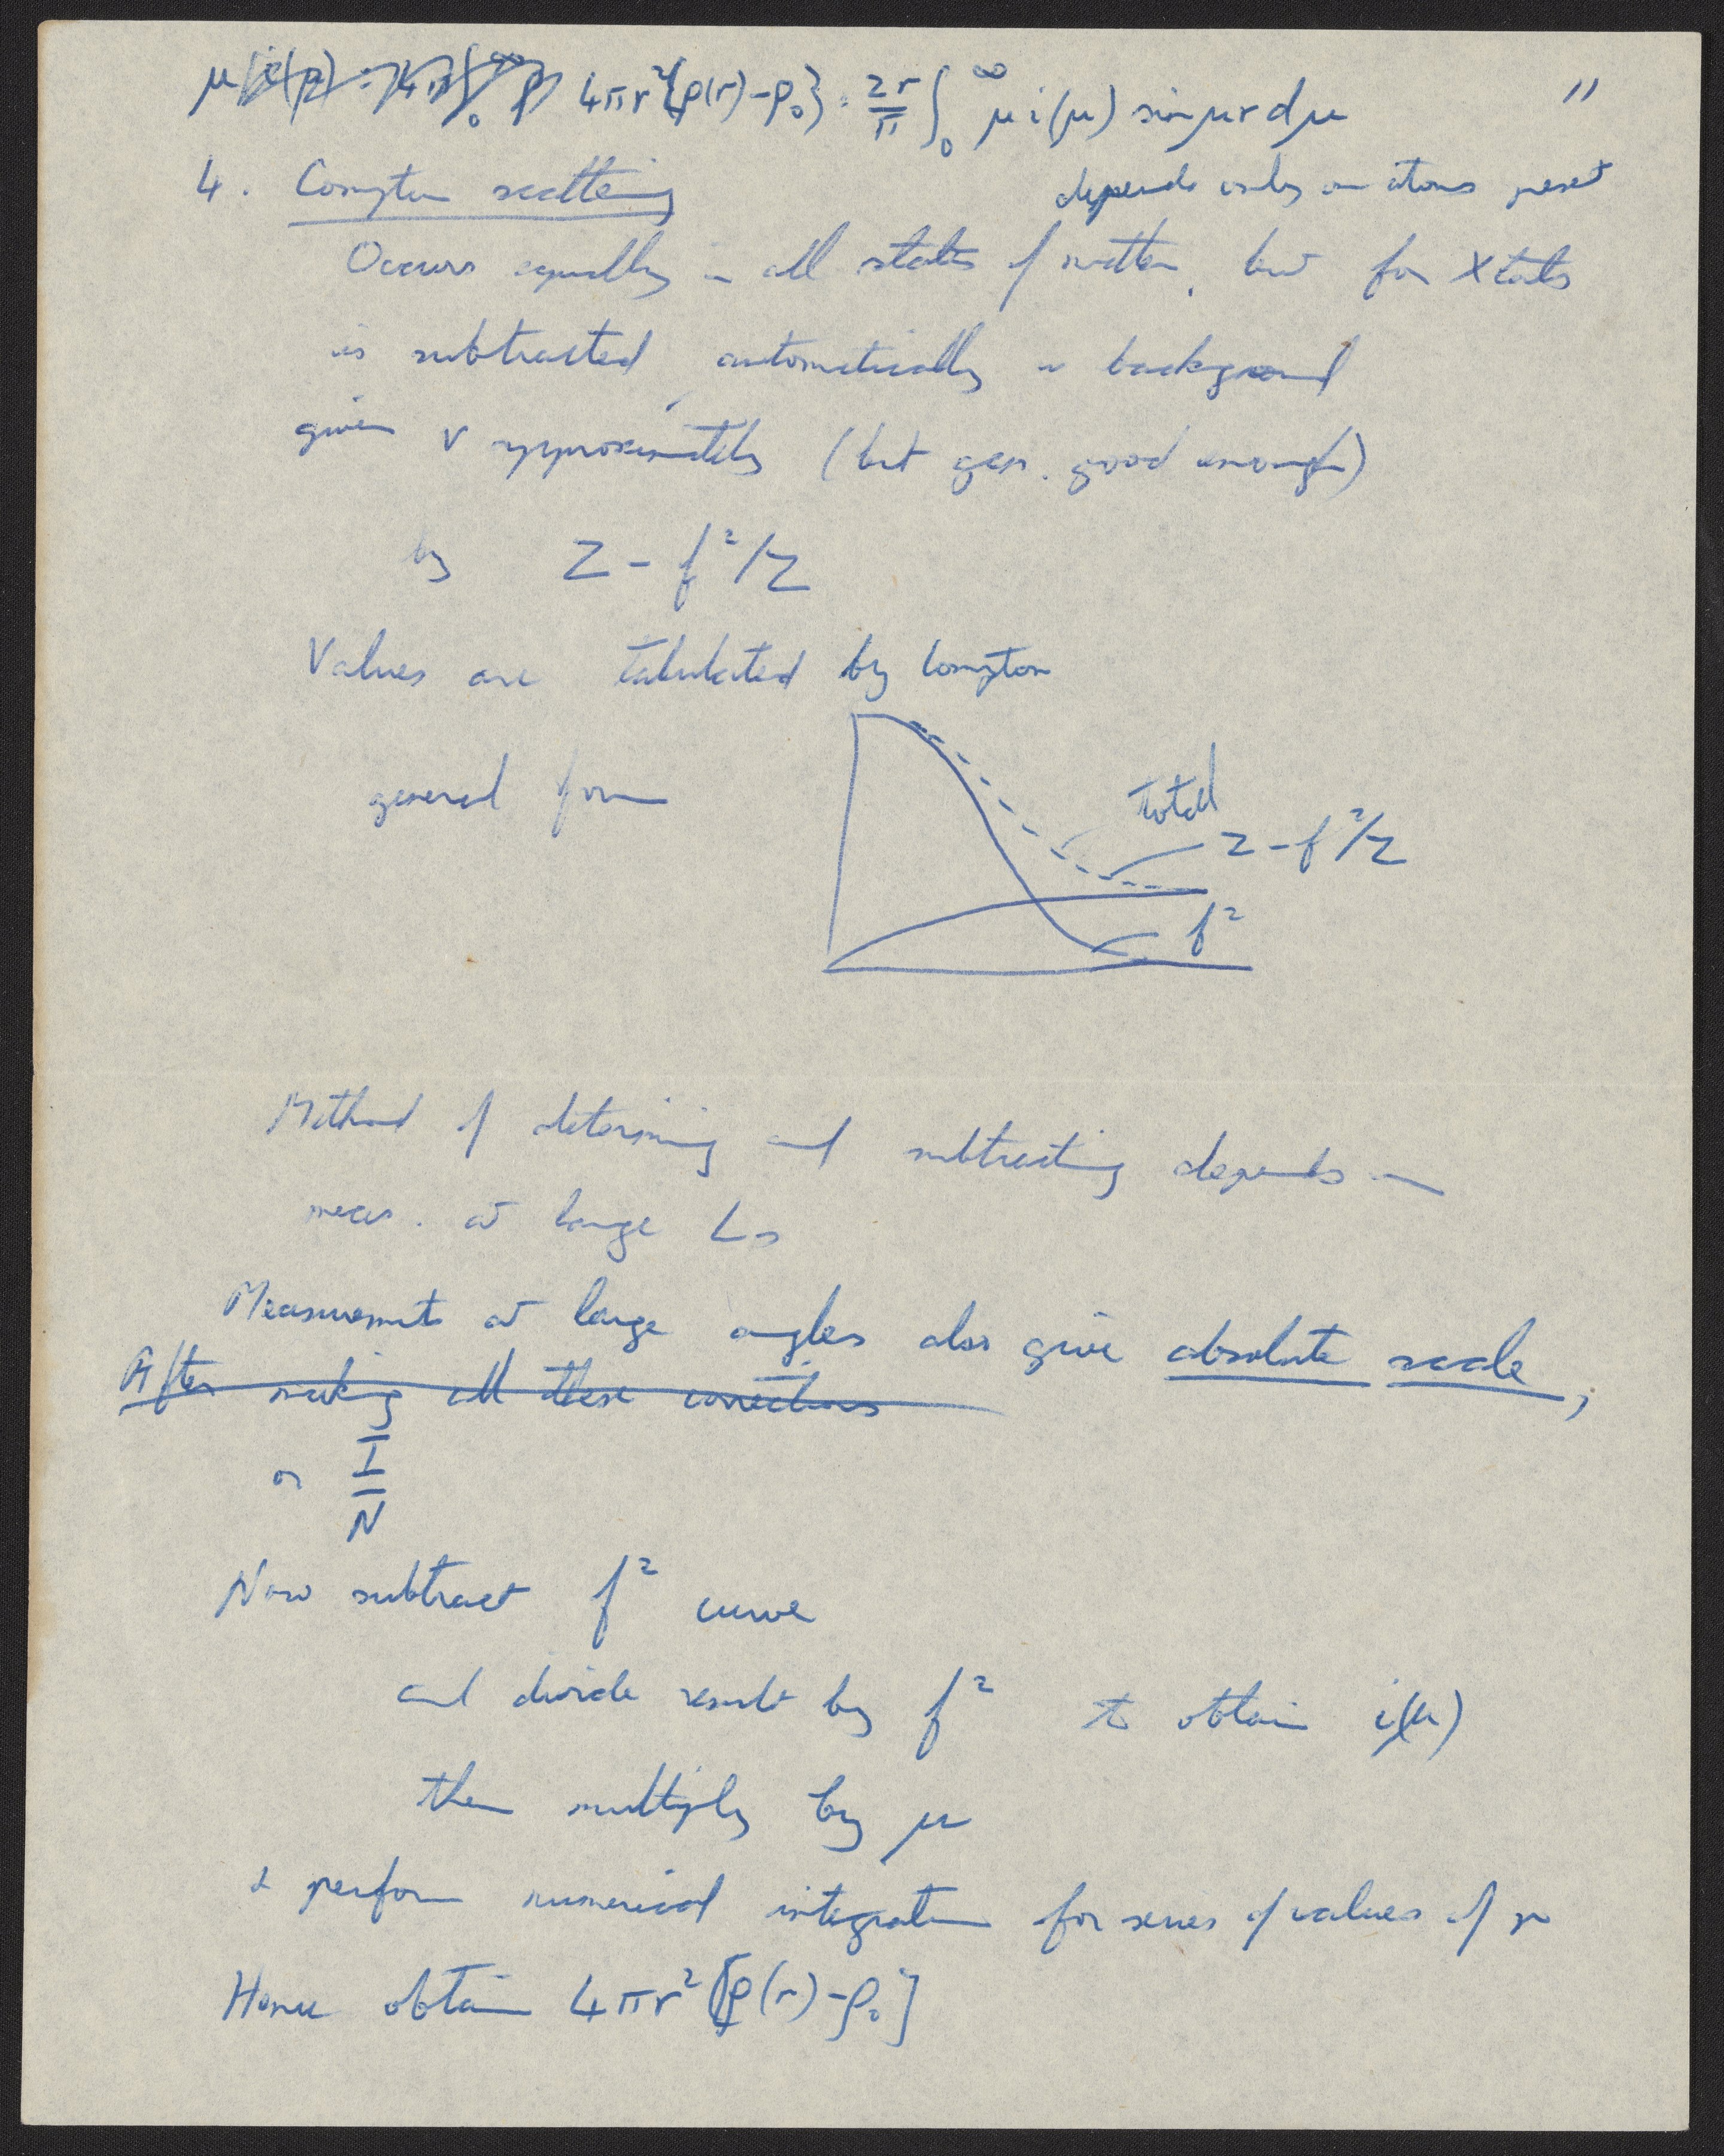 μ i(μ) = 4π∫₀^∞ ρ 4πr²{ρ(r)-ρ₀} = 2r/π ∫₀^∞ μ i(μ) sin μr dμ 11
4. Compton scattering depends only on atoms present
Occurs equally in all states of matter, but for Xtals
is subtracted automatically as background
given v approximately (but gen. good enough)
by Z - f²/Z
Values are tabulated by Compton
general form
total
Z - f²/Z
f²
Method of determining and subtracting depends on
meas. at large ∠s
Measurements at large angles also give absolute scale,
After making all these corrections
or I/N
Now subtract f² curve
and divide result by f² to obtain i(μ)
then multiply by μ
& perform numerical integration for series of values of r
Hence obtain 4πr²[ρ(r)-ρ₀]